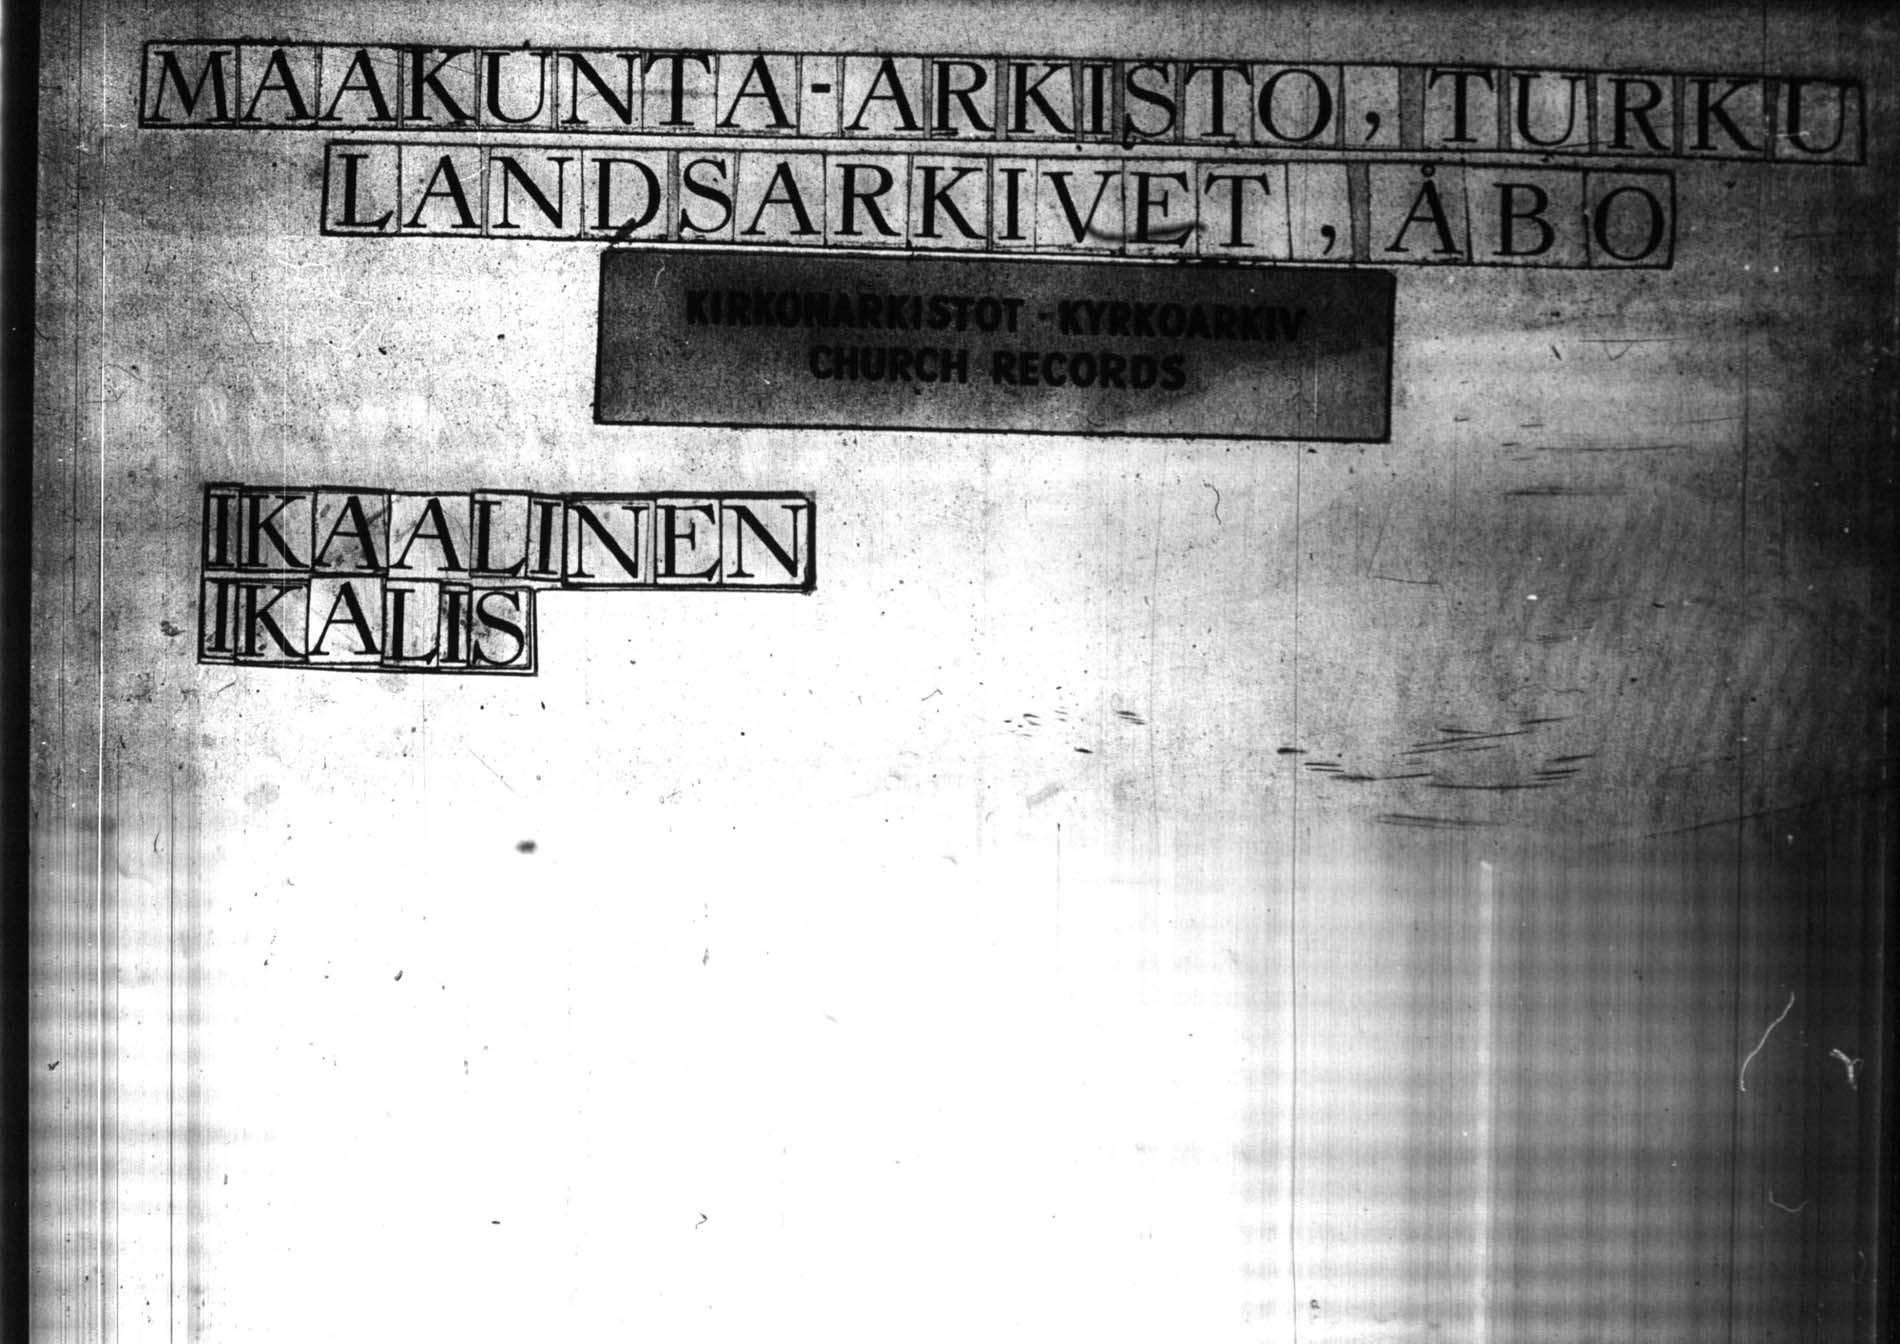 MAAKUNTA-ARKISTO, TURKU
LANDSARKIVET, ÅBO
KIRKONARKISTOT - KYRKOARKIV
CHURCH RECORDS
IKAALINEN
IKALIS